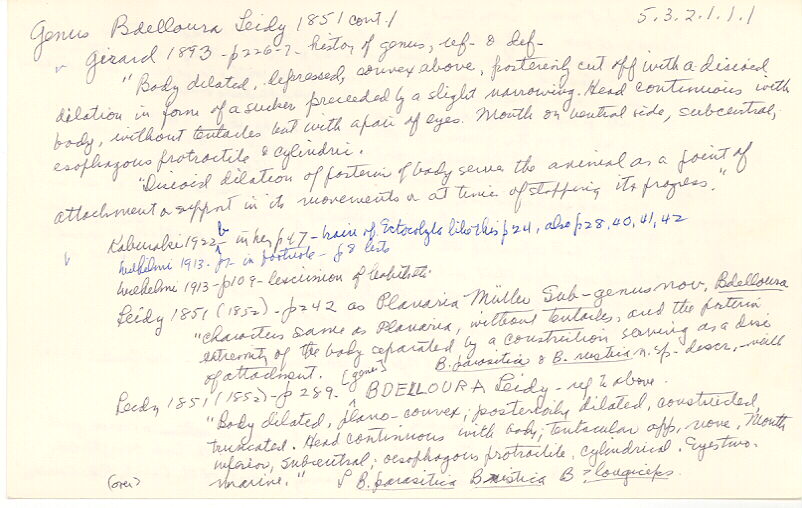 Genus Bdelloura Leidy 1851 cont./ 5.3.2.1.1.1
Girard 1893 - p226-7 - history of genus, ref- & def-
"Body dilated, depressed, convex above, posteriorly cut off with a discoid
dilation in form of a sucker preceded by a slight narrowing. Head continuous with
body, without tentacles but with a pair of eyes. Mouth on ventral side, subcentral;
esophagous protractile & cylindric.
"Discoid dilation of posterior of body serve the animal as a point of
attachment or support in its movements or at time of stopping its progress."
Kaburaki 1922b - in key p47 - brain of Ectocotyla like this p24, also p28, 40, 41, 42
Wilhelmi 1913 - p7 - in footnote - p8 lists
Wilhelmi 1913 - p109 - discussion of habitats.
Leidy 1851 (1852) - p242 as Planaria Müller Sub-genus nov. Bdelloura
"characters same as Planaria, without tentacles, and the posterior
extremity of the body separated by a constriction serving as a disc
of attachment. B. parasitica & B. rustica n. sp. - descr. -
Leidy 1851 (1852) - p 289. (genus) BDELLOURA Leidy - ref to above.
"Body dilated, plano-convex; posteriorly dilated, constricted,
truncated. Head continuous with body; tentacular app. none. Mouth
inferior, subcentral; oesophagous protractile, cylindrical. Eyes two.
marine." B. parasitica B rustica B longiceps.
(over)